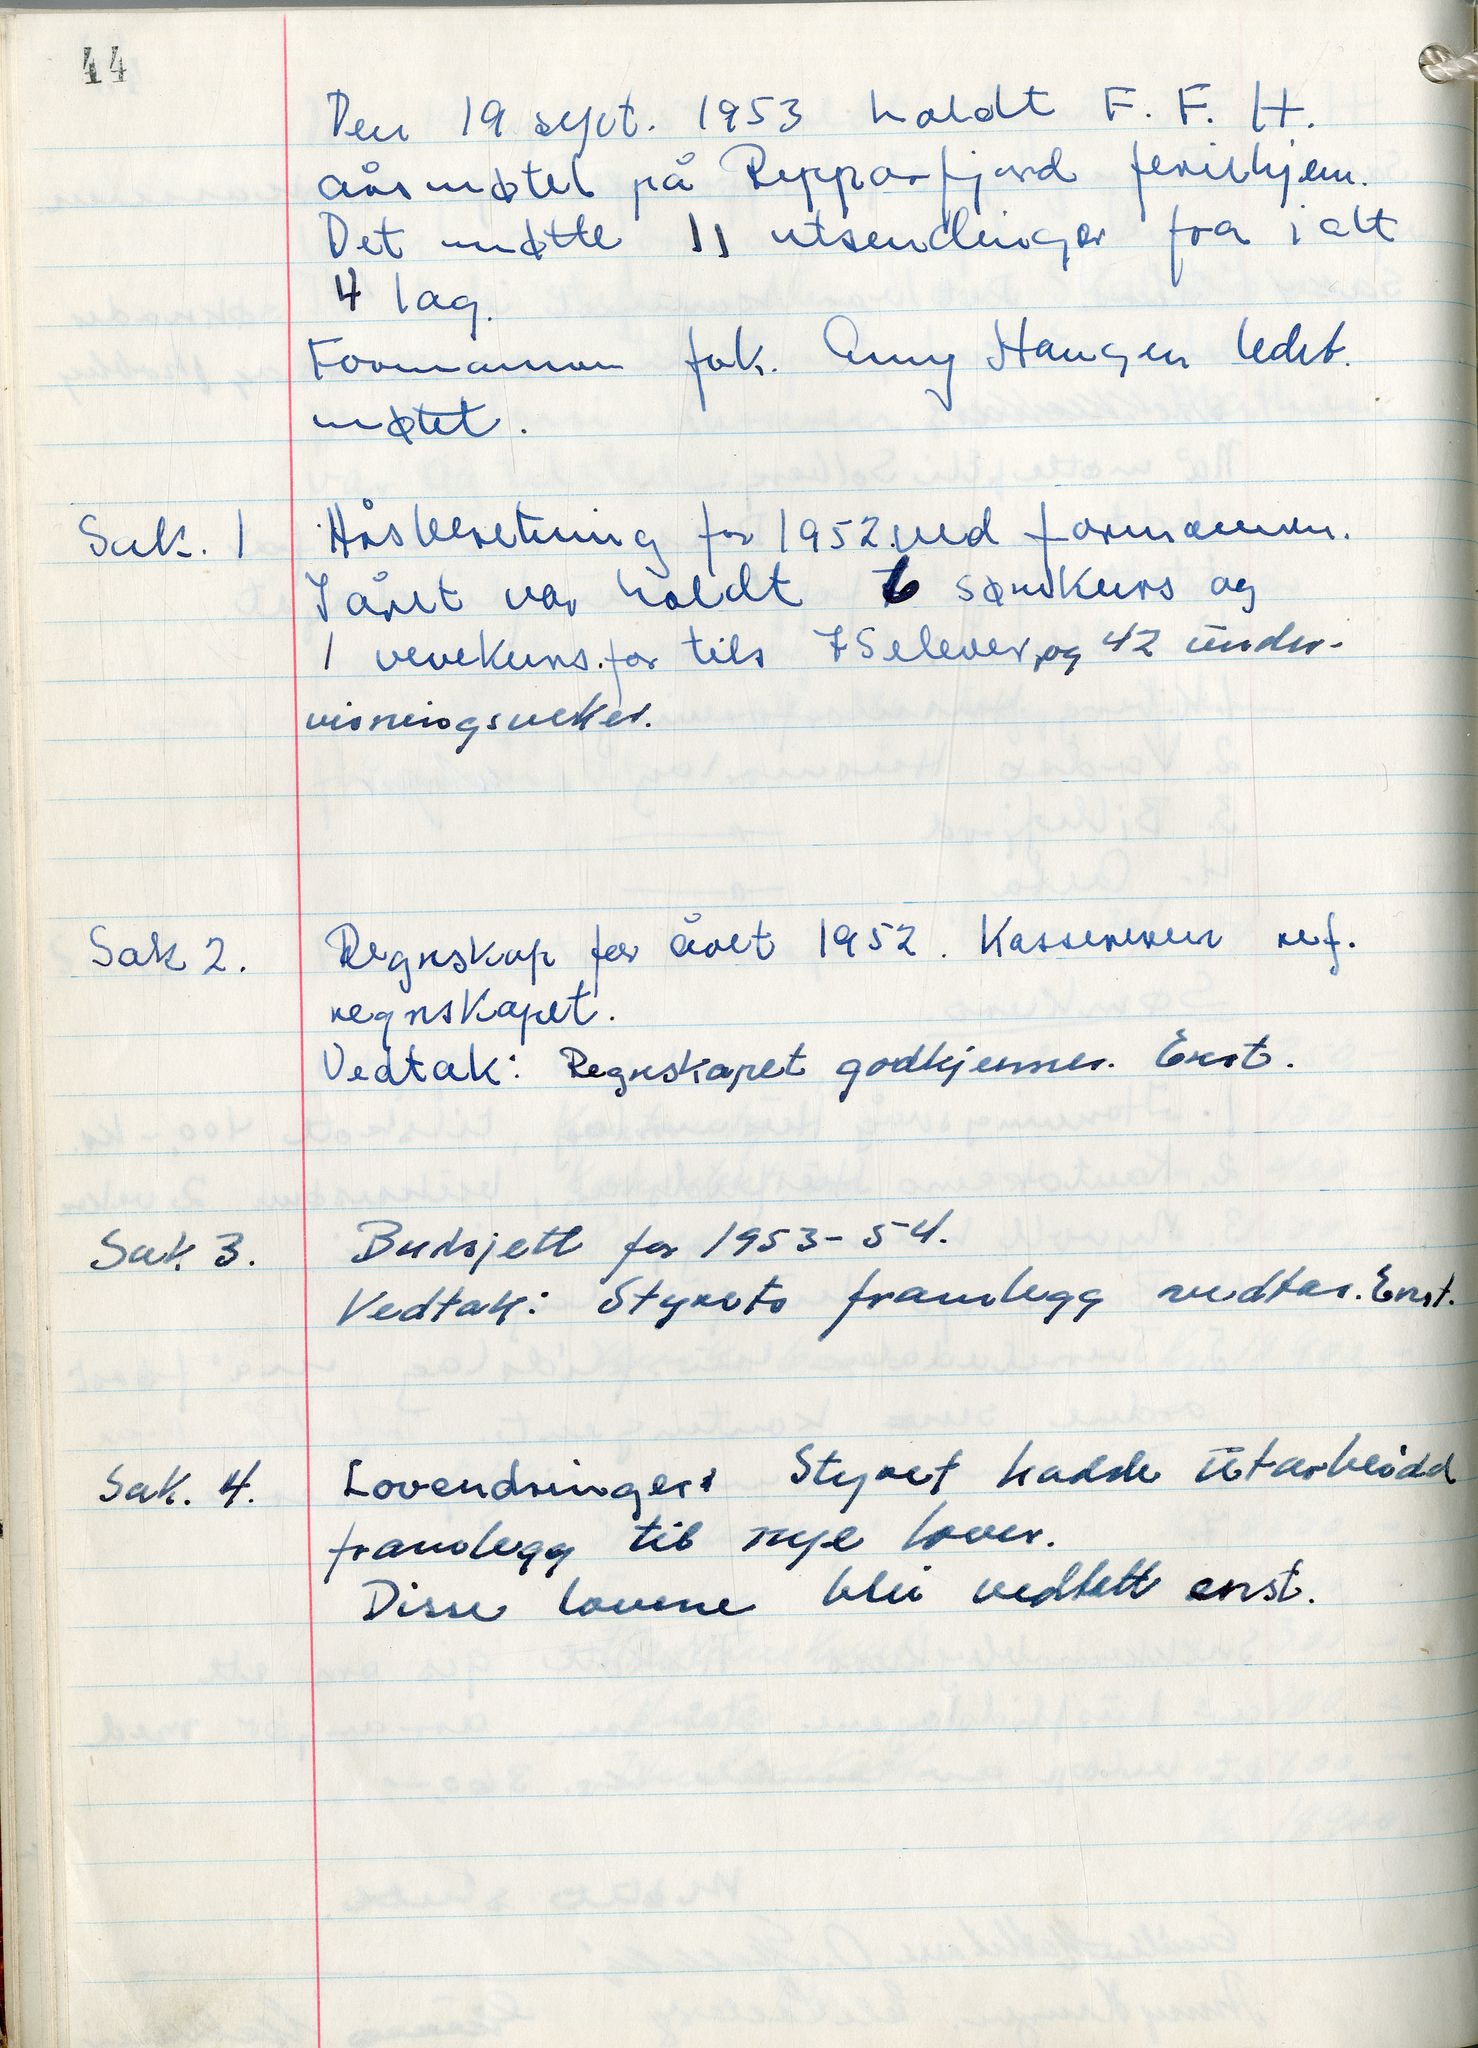 44
Den 19 sept. 1953 holdt F. F. H.
årsmøtet på Repparfjord feriehjem.
Det møtte 11 utsendinger fra i alt
4 lag.
Formannen frk. Anny Haugen ledet
møtet.
Sak. 1 Årsberetning for 1952 ved formannen.
I året var holdt 6 sømkurs og
1 vevekurs for tils 75 elever, og 42 under-
visningsveker.
Sak 2. Regnskap for året 1952. Kassereren ref.
regnskapet.
Vedtak: Regnskapet godkjennes. Enst.
Sak 3. Budsjett for 1953-54.
Vedtak: Styrets framlegg vedtas. Enst.
Sak. 4. Lovendringer: Styret hadde utarbeidd
framlegg til nye lover.
Disse lovene blei vedtatt enst.